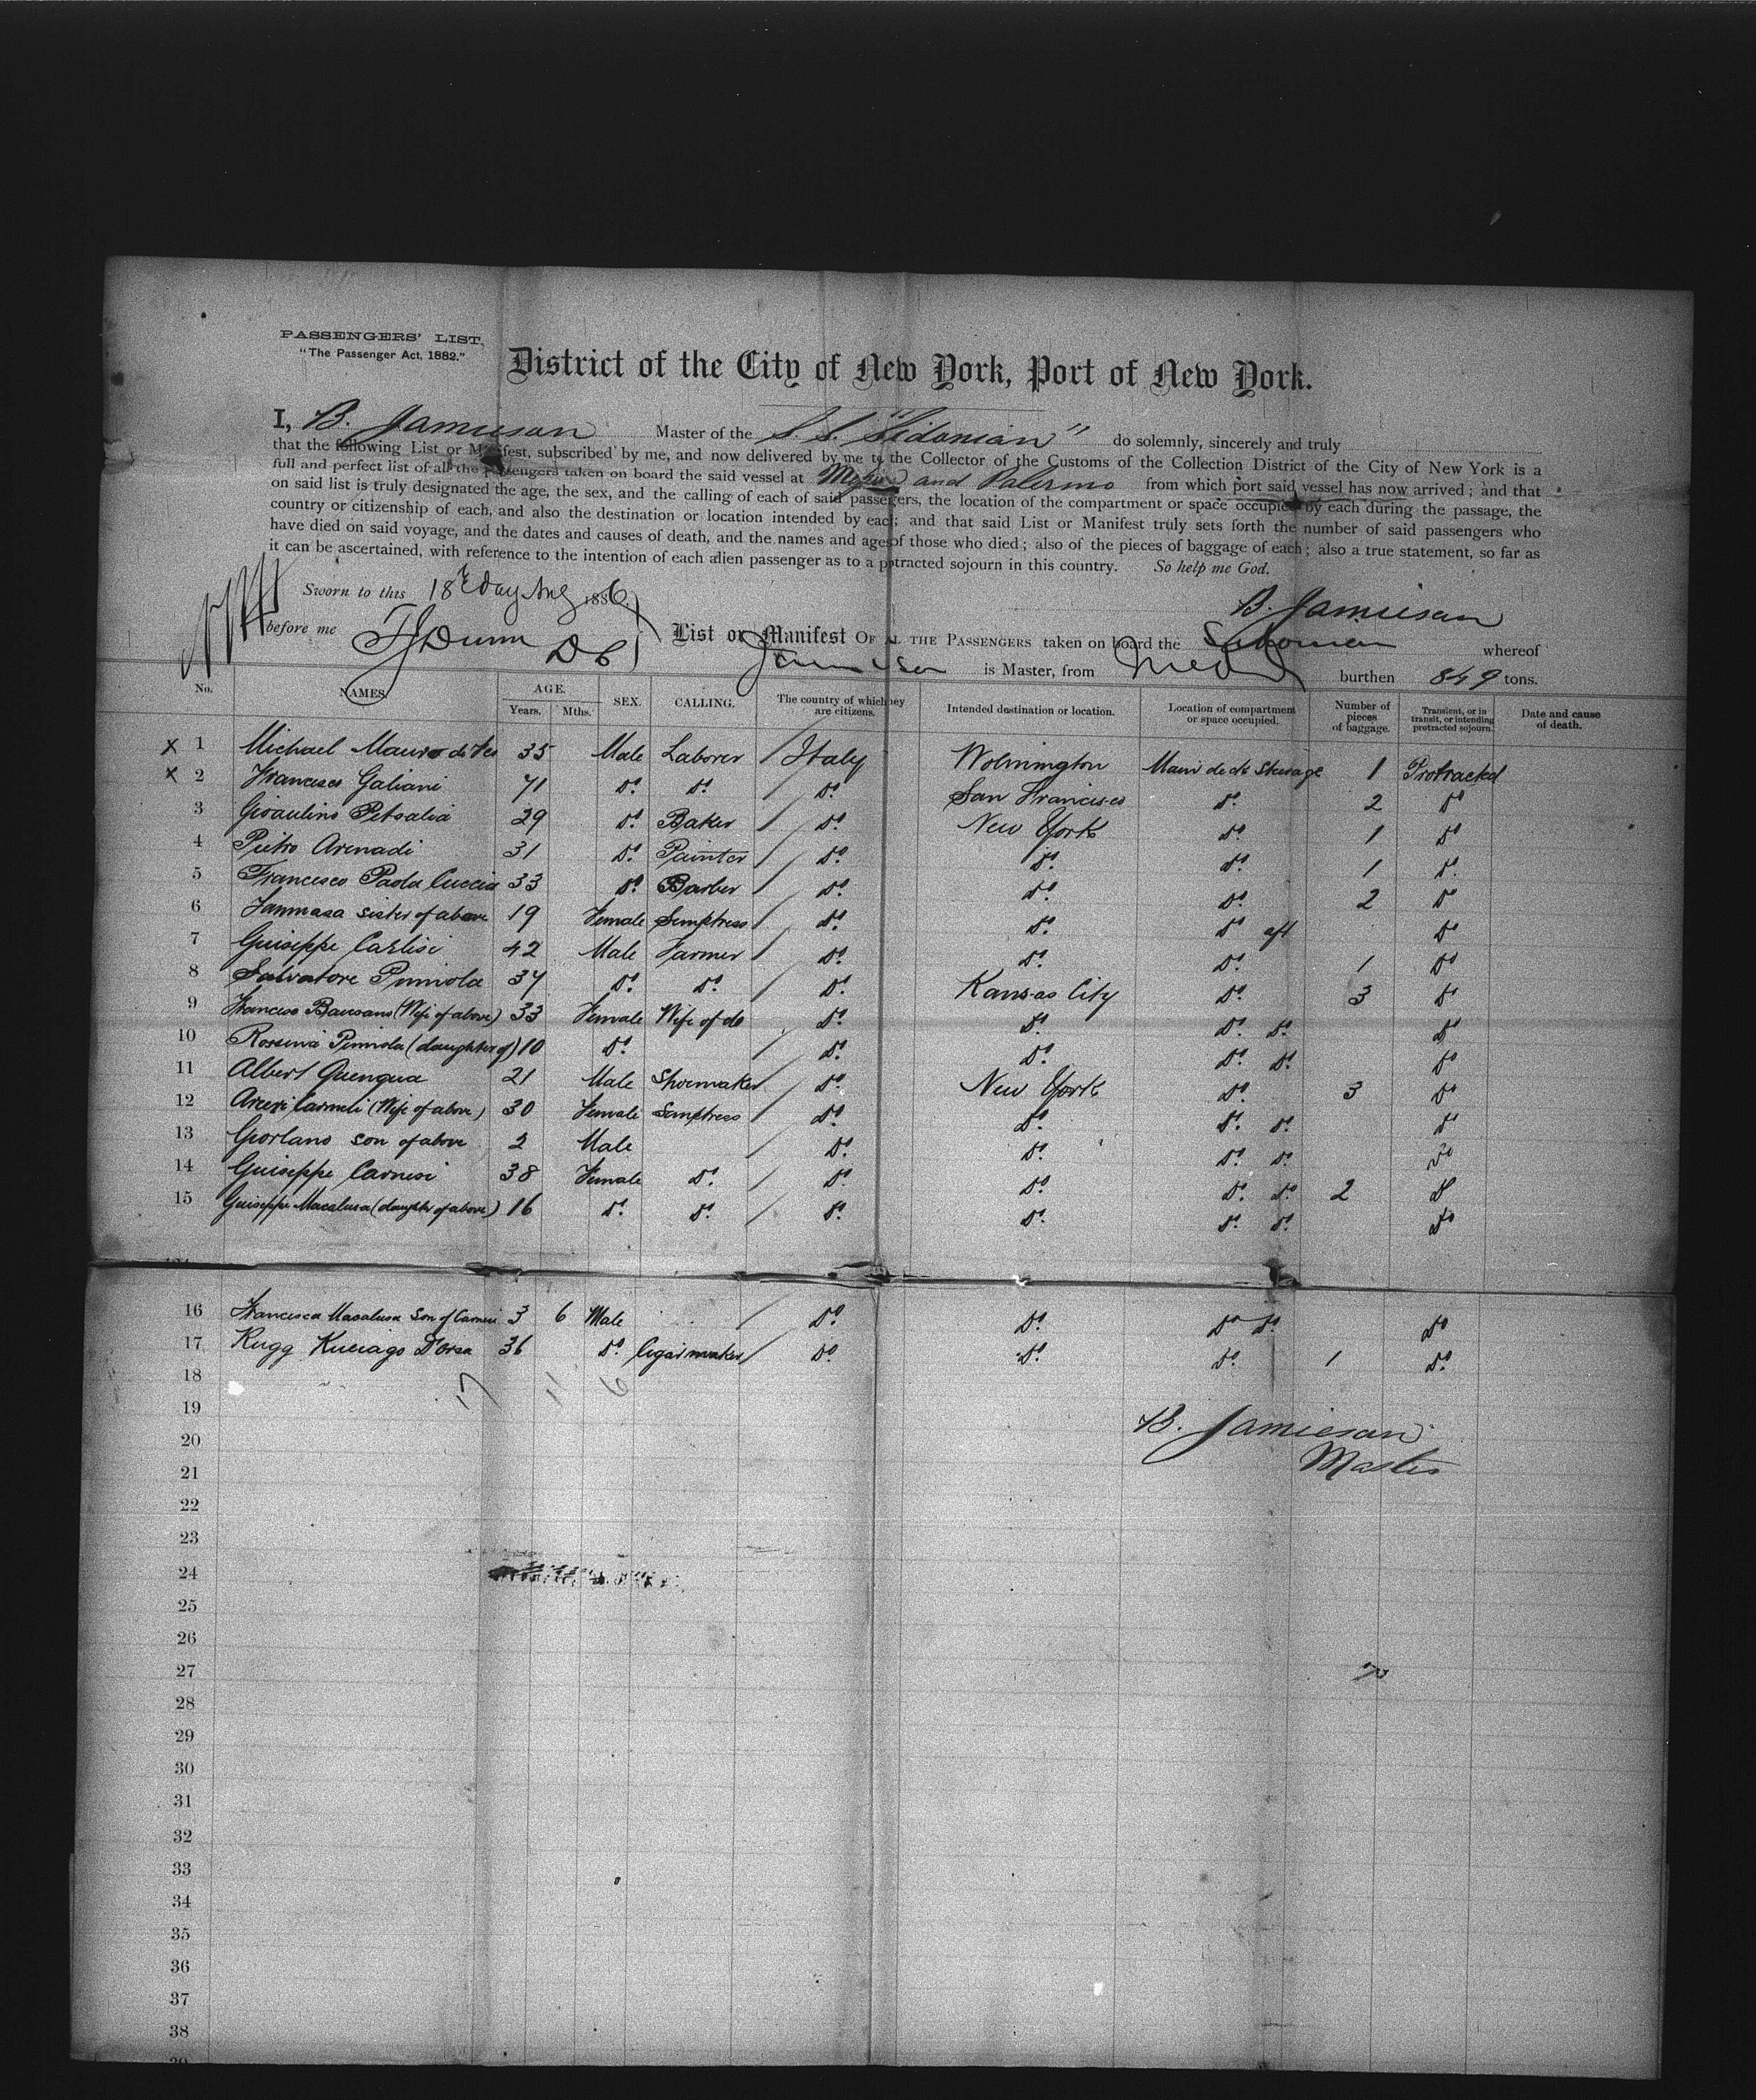 PASSENGERS' LIST.
"The Passenger Act, 1882."
District of the City of New York, Port of New York.
I, B. Jamieson Master of the S. S. "Sidonian" do solemnly, sincerely and truly
that the following List or Manifest, subscribed by me, and now delivered by me to the Collector of the Customs of the Collection District of the City of New York is a
full and perfect list of all the passengers taken on board the said vessel at and Palermo from which port said vessel has now arrived; and that
on said list is truly designated the age, the sex, and the calling of each of said passengers, the location of the compartment or space occupied by each during the passage, the
country or citizenship of each, and also the destination or location intended by each; and that said List or Manifest truly sets forth the number of said passengers who
have died on said voyage, and the dates and causes of death, and the names and ages of those who died; also of the pieces of baggage of each; also a true statement, so far as
it can be ascertained, with reference to the intention of each alien passenger as to a protracted sojourn in this country. So help me God.
Sworn to this 18th day Aug 1886.
B. Jamieson
before me TJ Dunn D C
List or Manifest OF ALL THE PASSENGERS taken on board the Sidonian whereof
Jamieson is Master, from Med burthen 849 tons.
No. NAMES. AGE. Years. Mths. SEX. CALLING. The country of which they are citizens. Intended destination or location. Location of compartment or space occupied. Number of pieces of baggage. Transient, or in transit, or intending protracted sojourn. Date and cause of death.
X 1 Michael Mauro de 35 Male Laborer / Italy Wolmington Main deck Steerage 1 Protracted
X 2 Francisco Galiani 41 Do. Do. / Do. San Francisco Do. 2 Do
3 Petsalia 29 Do. Baker / Do. New York Do. 1 Do
4 Pietro Arenadi 31 Do. Painter / Do. Do. Do. 1 Do.
5 Francesco Paola Cuccia 33 Do. Barber / Do. Do. Do. 2 Do
6 sister of above 19 Female Semptress / Do. Do. Do aft Do
7 Guiseppe Carlisi 42 Male Farmer / Do. Do. Do. 1 Do
8 Salvatore 34 Do. Do. / Do. Kansas City Do. 3 Do
9 Francesco Bausano (Wife of above) 33 Female Wife of do / Do. Do. Do. Do. Do
10 Rossina (daughter of) 10 Do. / Do. Do. Do. Do. Do
11 Albert Quengua 21 Male Shoemaker / Do. New York Do. 3 Do
12 Carmeli (Wife of above) 30 Female Semptress / Do. Do. Do. Do. Do
13 Giorlano son of above 2 Male / Do. Do. Do. Do. Do
14 Guiseppe Carnesi 38 Female Do. / Do. Do. Do. Do. 2 Do
15 Guiseppe Macalusa (daughter of above) 16 Do. Do. / Do. Do. Do. Do. Do
16 Francesca Macalusa Son of Carnesi 3 6 Male / Do. Do. Do Do. Do
17 Rugg Kuciago D'Orsa 36 Do Cigar maker / Do. Do. Do. 1 Do.
18
17 11 6
19
B. Jamieson
20
Master
21
22
23
24
25
26
27
28
29
30
31
32
33
34
35
36
37
38
39